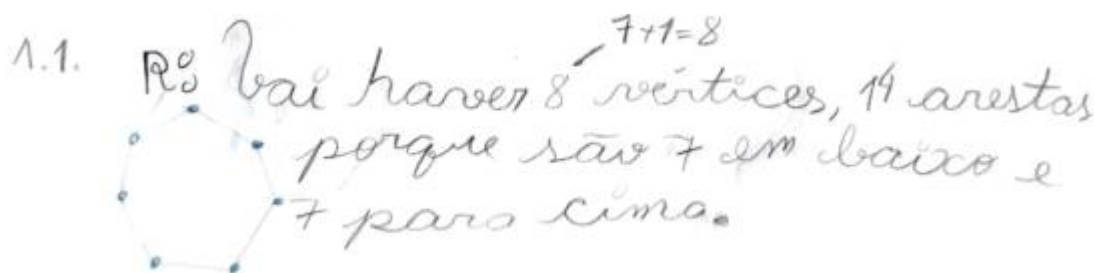 7+1=8
1.1. R: Vai haver 8 vértices, 14 arestas
porque são 7 em baixo e
7 para cima.